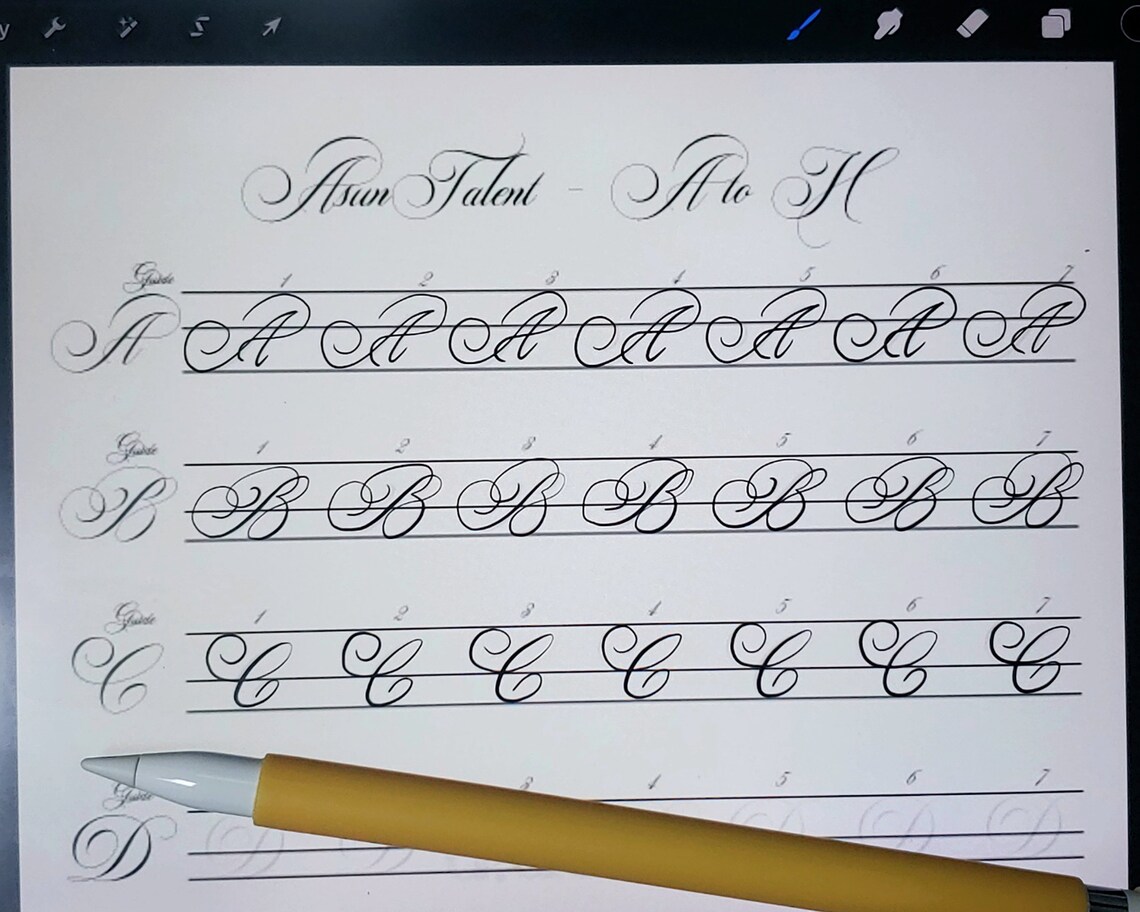 Asun Talent - A to H
Guide 1 2 3 4 5 6 7
A A A A A A A A
Guide 1 2 3 4 5 6 7
B B B B B B B B
Guide 1 2 3 4 5 6 7
C C C C C C C C
Guide 3 4 5 6 7
D D D D D D